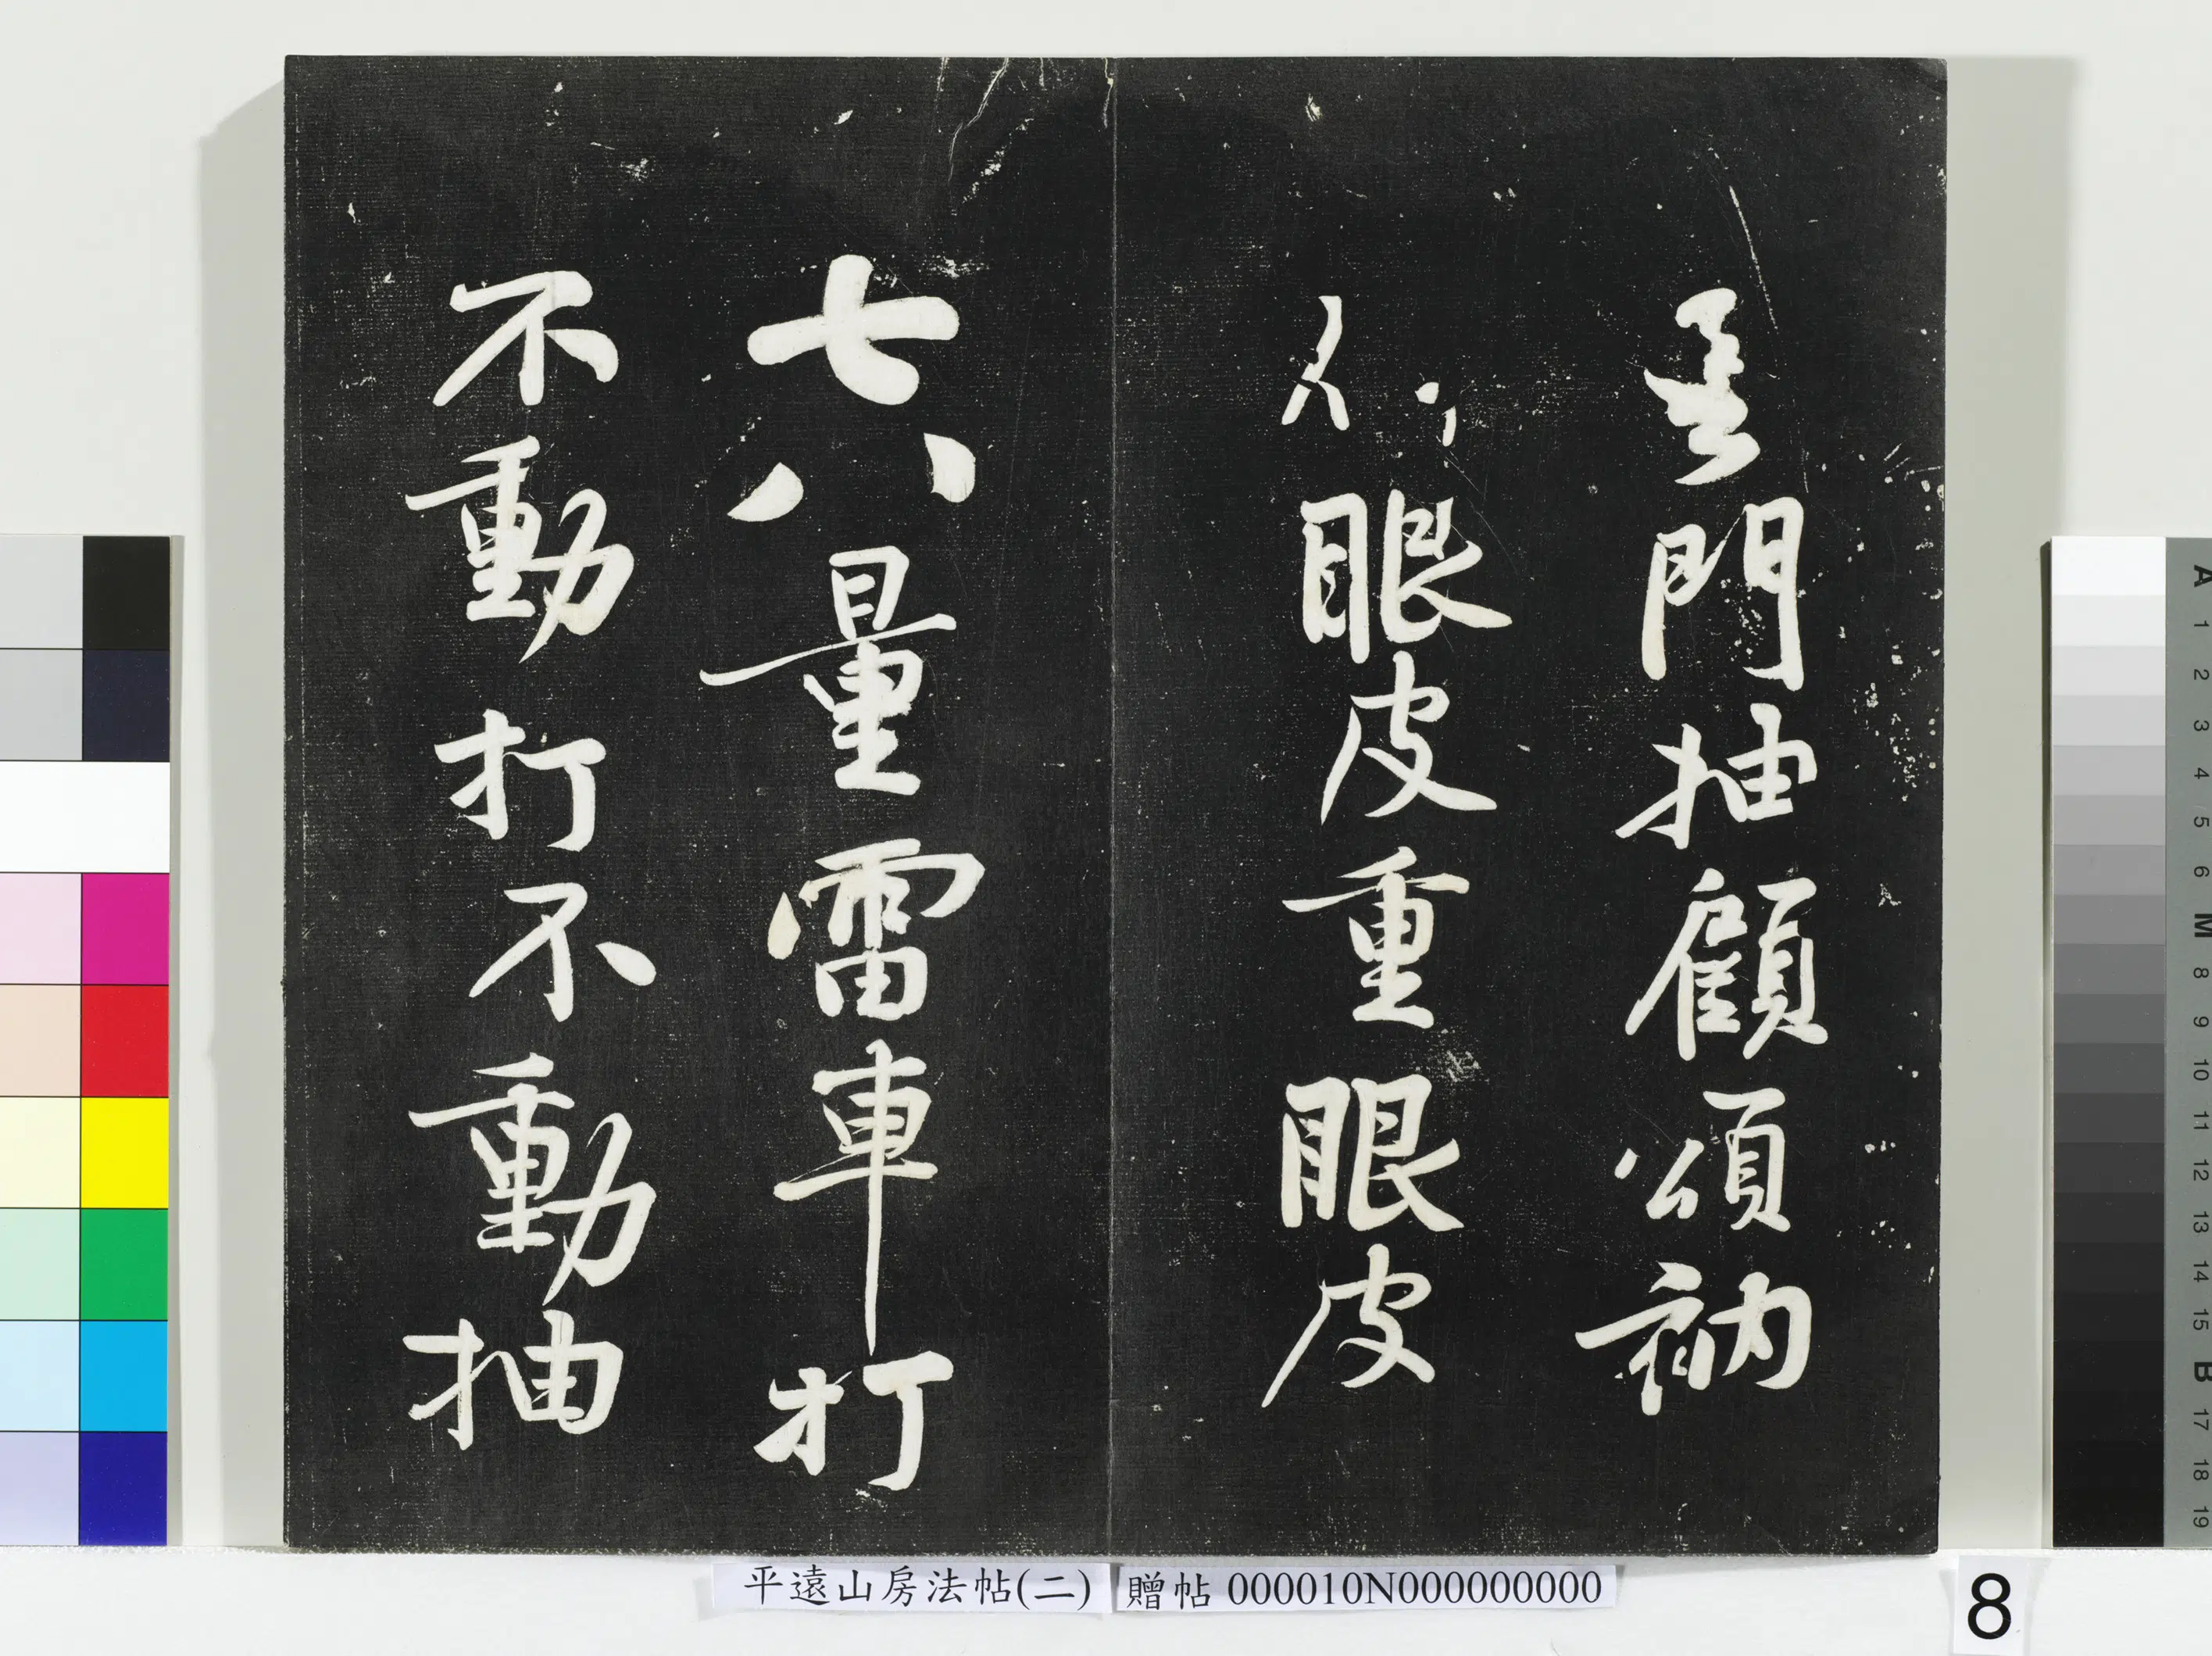 雲門抽顧頌衲
眼皮重眼皮
七八量雷車打
不動打不動抽
平遠山房法帖(二)
贈帖 000010N000000000
8
A 1 2 3 4 5 6 M 8 9 10 11 12 13 14 15 B 17 18 19